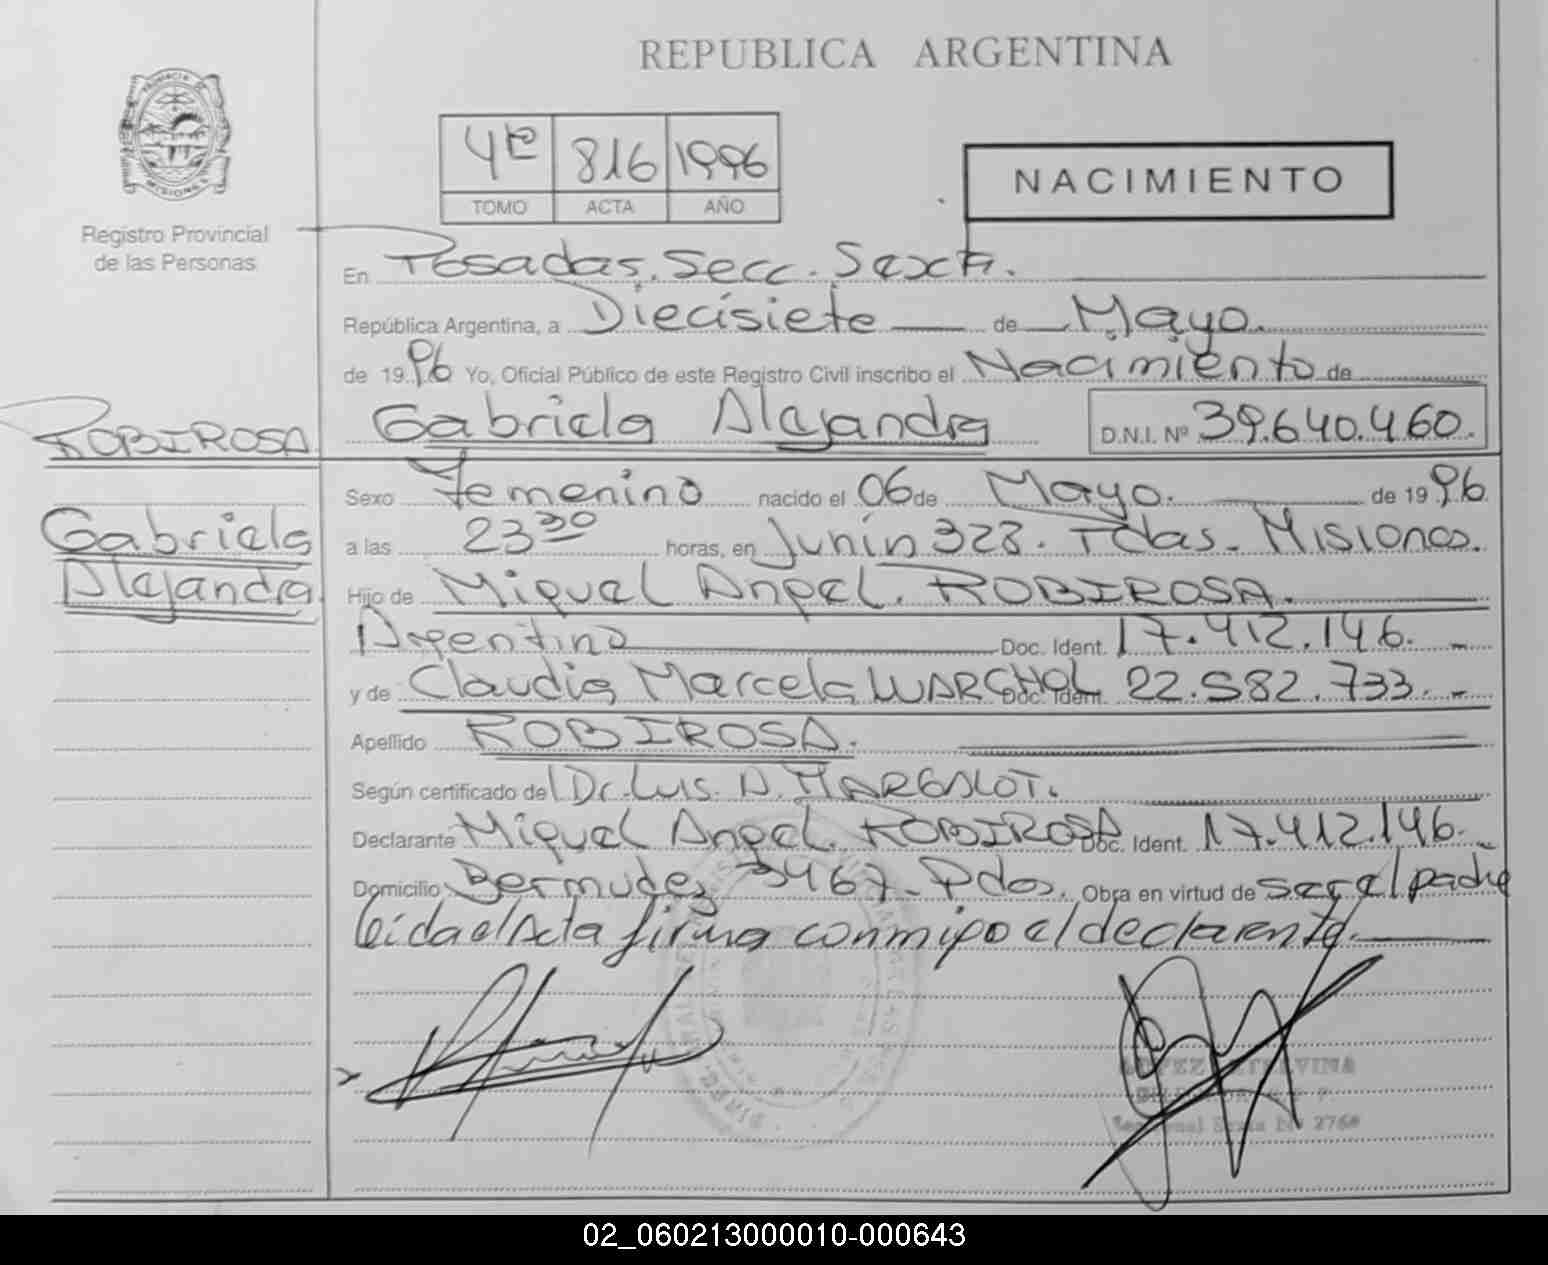 REPUBLICA ARGENTINA
PROVINCIA DE
MISIONES
Registro Provincial
de las Personas
4º 816 1996
TOMO ACTA AÑO
NACIMIENTO
En Posadas. Secc. Sexta.
República Argentina, a Diecisiete de Mayo.
de 1996 Yo, Oficial Público de este Registro Civil inscribo el Nacimiento de
ROBIROSA
Gabriela Alejandra D.N.I. Nº 39.640.460.
Sexo Femenino nacido el 06 de Mayo. de 1996
Gabriela
Alejandra
a las 23 30 horas, en Junín 323. Pdas. Misiones.
Hijo de Miguel Angel. ROBIROSA.
Argentino Doc. Ident. 17.412.146.
y de Claudia Marcela WARCHOL Doc. Ident. 22.582.733.
Apellido ROBIROSA.
Según certificado del Dr. Luis. A. MARGALOT.
Declarante Miguel Angel. ROBIROSA Doc. Ident. 17.412.146.
Domicilio Bermudez 3467. Pdas. Obra en virtud de ser el padre
leida el Acta firma conmigo el declarante.
LOPEZ ETELVINA
Seccional Sexta Nº 2768
02_060213000010-000643